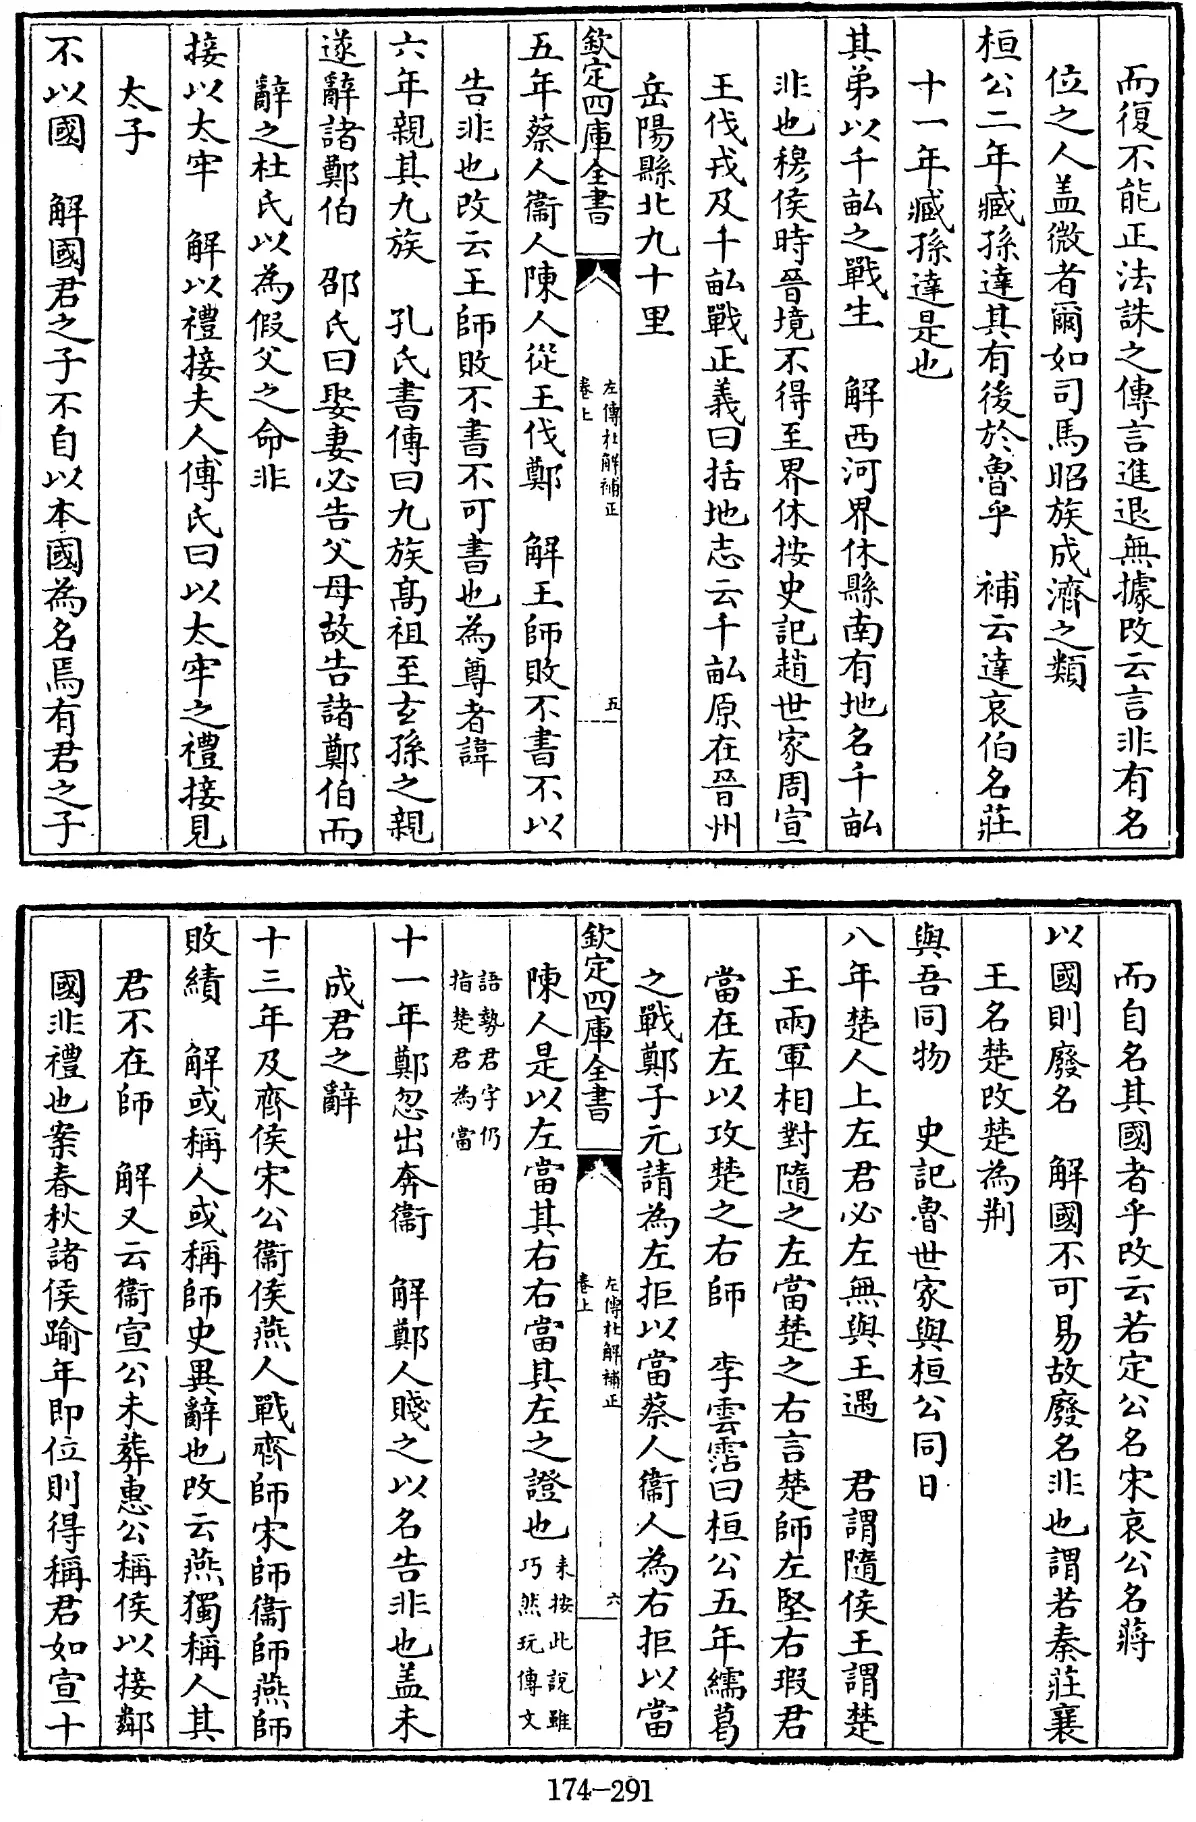 而復不能正法誅之傳言進退無據改云言非有名
位之人盖微者爾如司馬昭族成濟之類
桓公二年臧孫達其有後於魯乎　補云達哀伯名莊
十一年臧孫達是也
其弟以千畝之戰生　解西河界休縣南有地名千畝
非也穆侯時晉境不得至界休按史記趙世家周宣
王伐戎及千畝戰正義曰括地志云千畝原在晉州
岳陽縣北九十里
欽定四庫全書
左傳杜解補正
卷上
五
五年蔡人衞人陳人從王伐鄭　解王師敗不書不以
告非也改云王師敗不書不可書也為尊者諱
六年親其九族　孔氏書傳曰九族髙祖至玄孫之親
遂辭諸鄭伯　邵氏曰娶妻必告父母故告諸鄭伯而
辭之杜氏以為假父之命非
接以太牢　解以禮接夫人傅氏曰以太牢之禮接見
太子
不以國　解國君之子不自以本國為名焉有君之子
而自名其國者乎改云若定公名宋哀公名蔣
以國則廢名　解國不可易故廢名非也謂若秦莊襄
王名楚改楚為荆
與吾同物　史記魯世家與桓公同日
八年楚人上左君必左無與王遇　君謂隨侯王謂楚
王兩軍相對隨之左當楚之右言楚師左堅右瑕君
當在左以攻楚之右師　李雲霑曰桓公五年繻葛
之戰鄭子元請為左拒以當蔡人衞人為右拒以當
欽定四庫全書
左傳杜解補正
卷上
六
陳人是以左當其右右當其左之證也
耒按此說雖
巧然玩傳文
語勢君字仍
指楚君為當
十一年鄭忽出奔衞　解鄭人賤之以名告非也盖未
成君之辭
十三年及齊侯宋公衞侯燕人戰齊師宋師衞師燕師
敗績　解或稱人或稱師史異辭也改云燕獨稱人其
君不在師　解又云衞宣公未葬惠公稱侯以接鄰
國非禮也案春秋諸侯踰年即位則得稱君如宣十
174-291